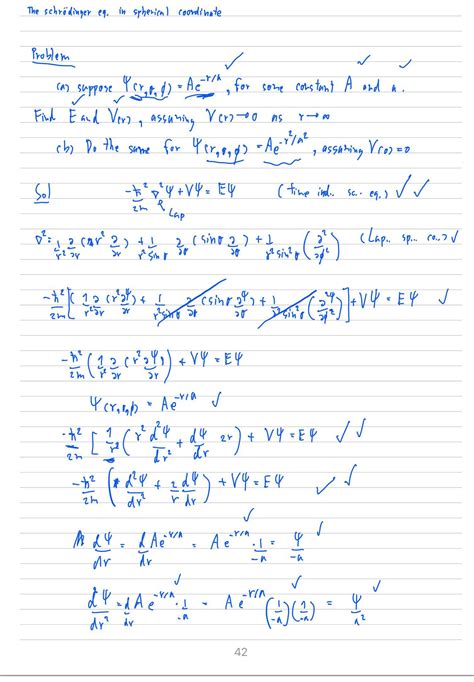 The schrödinger eq. In spherical coordinate
Problem
(a) suppose Ψ(r,θ,ϕ) = Ae^{-r/a}, for some constant A and a.
Find E and V(r), assuming V(r)→0 as r→∞
(b) Do the same for Ψ(r,θ,ϕ) = Ae^{-r²/a²}, assuming V(0)=0
Sol -ħ²/2m ∇²Ψ + VΨ = EΨ (time ind. sc.. eq.) ✓ ✓
Lap
∇² = 1/r² ∂/∂r (r² ∂/∂r) + 1/r² sinθ ∂/∂θ (sinθ ∂/∂θ) + 1/r² sin²θ (∂²/∂ϕ²) (Lap.. sp... co..) ✓
-ħ²/2m [(1/r² ∂/∂r (r² ∂Ψ/∂r) + 1/r² sinθ ∂/∂θ (sinθ ∂Ψ/∂θ) + 1/r² sin²θ (∂²Ψ/∂ϕ²)] + VΨ = EΨ ✓
-ħ²/2m (1/r² ∂/∂r (r² ∂Ψ/∂r)) + VΨ = EΨ
Ψ(r,θ,ϕ) = Ae^{-r/a} ✓
-ħ²/2m [1/r² (r² d²Ψ/dr² + dΨ/dr 2r) + VΨ = EΨ ✓ ✓
-ħ²/2m (d²Ψ/dr² + 2/r dΨ/dr) + VΨ = EΨ ✓ ✓
dΨ/dr = d/dr Ae^{-r/a} = Ae^{-r/a} · 1/-a = Ψ/-a ✓
d²Ψ/dr² = d/dr Ae^{-r/a} · 1/-a = Ae^{-r/a} (1/-a)(1/-a) = Ψ/a² ✓
42